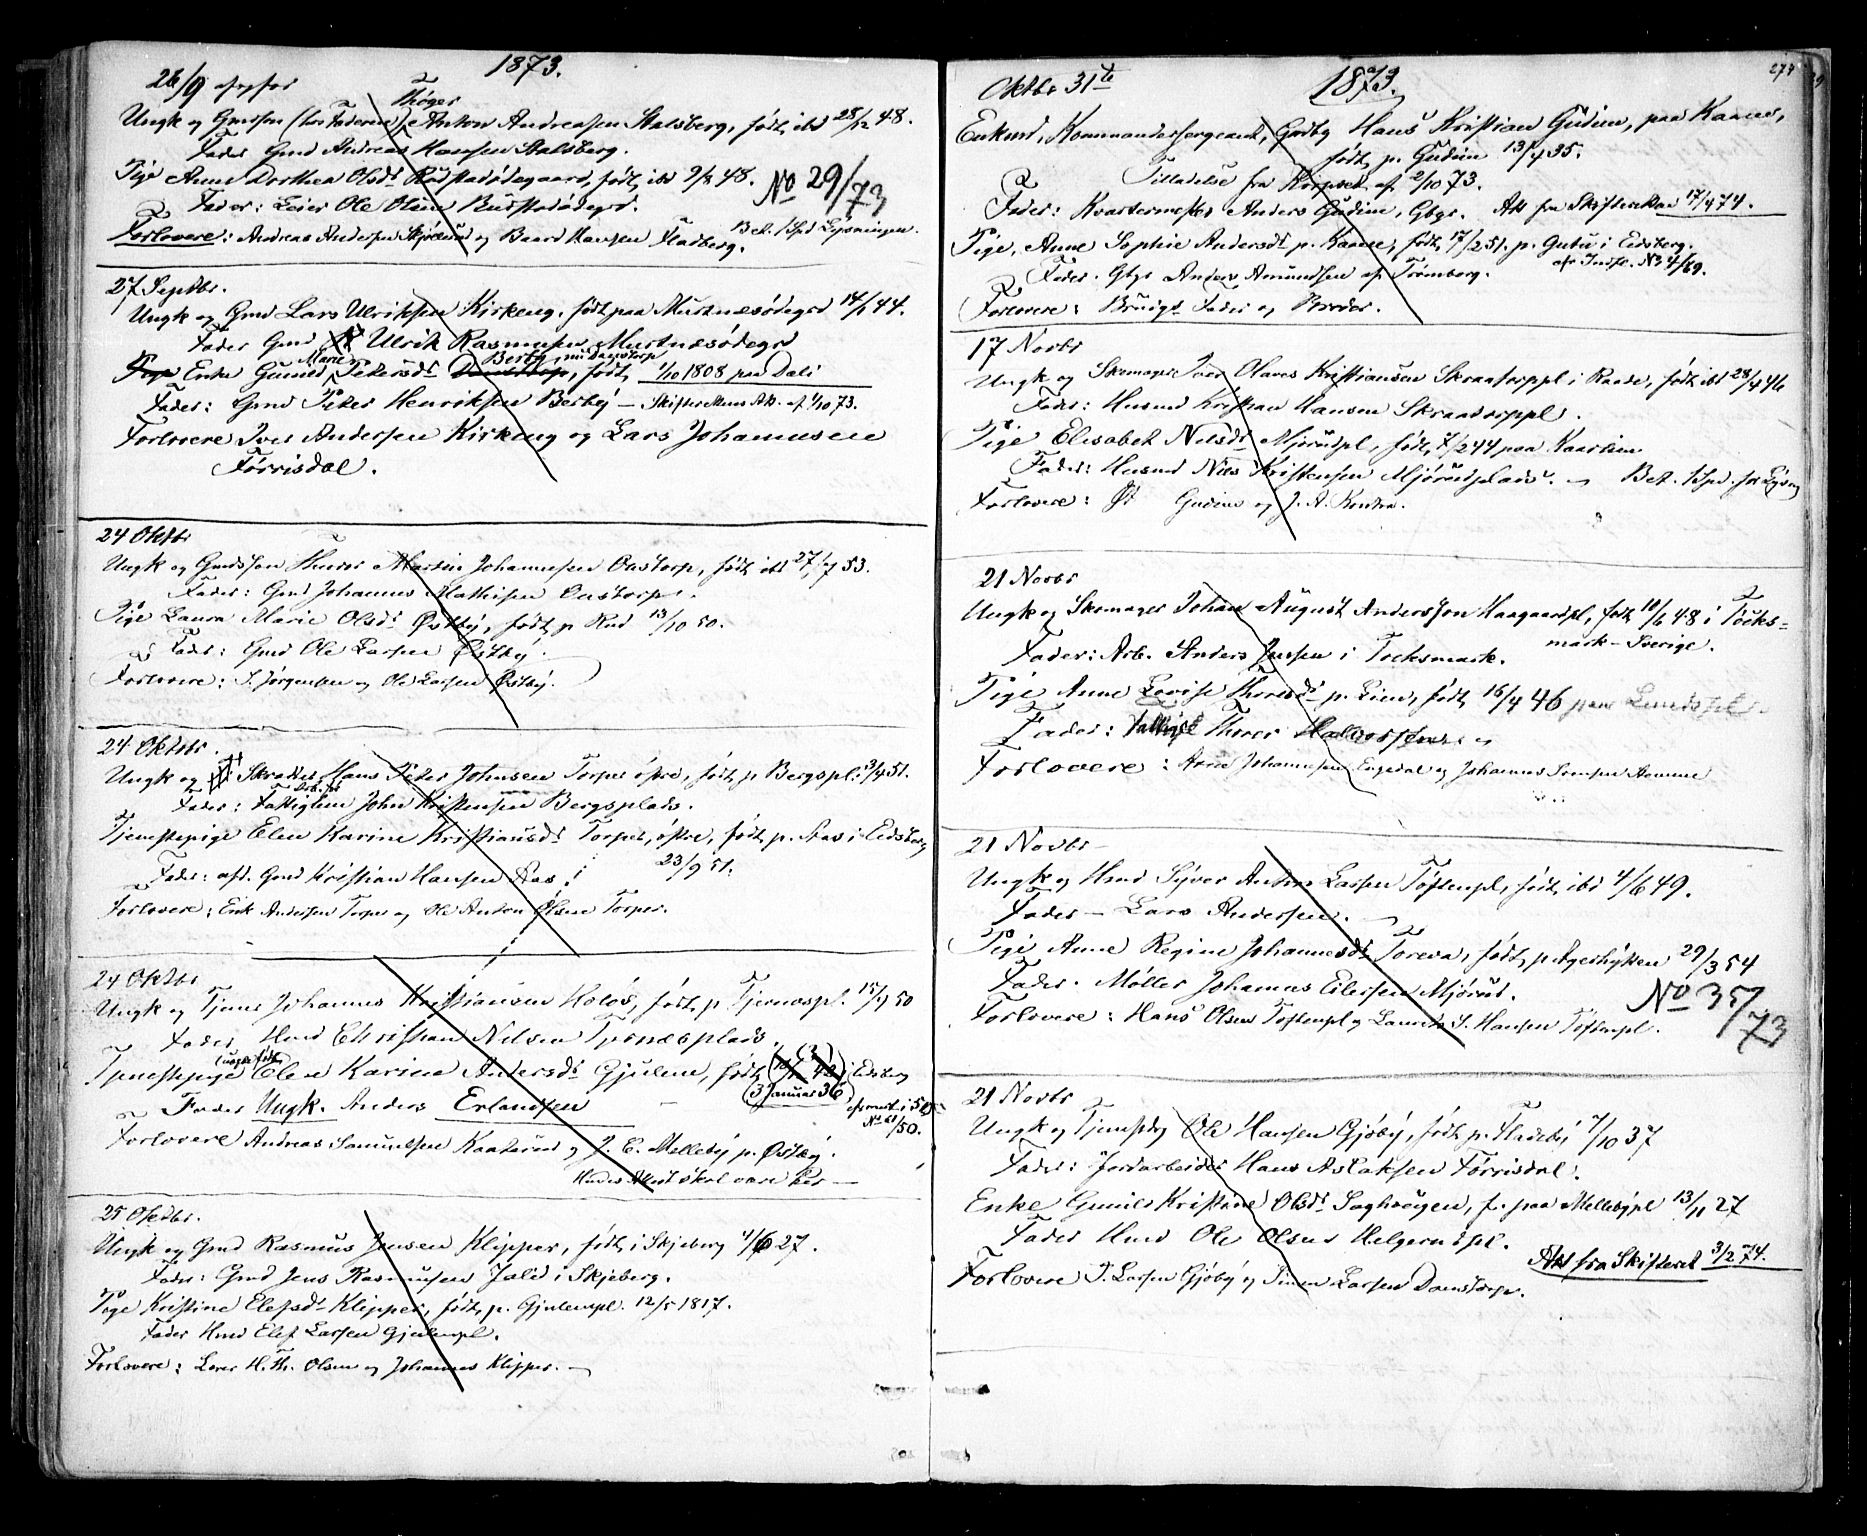 1873.
26/9
Thøger
Ungk og Gmssøn (hos Faderen) Anton Andreasen Aalsberg, født ibd 28/12 48.
Fader Gmd Andreas Hansen Aalsberg.
Pige Anne Dorthea Olsdr Rudstadødegaard, født ibd 9/8 48. No 29/73
Fader: Leier Ole Olsen Rudstadødegd.
Forlovere: Andreas Andersen og Baard Hansen Fladberg. Bet. 1 Spd Lysningen.
27 Septbr.
Ungk og Gmd Lars Ulriksen Kirkeng, født paa Murtnæsødegrd 14/1 44.
Fader Gmd Ulrik Rasmusen Murtnæsødegrd
Marie Berby, nu Damstorp
Pige Enke Gunild Petersdr Damstorp, født 1/10 1808 paa Dali
Fader: Gmd Peter Henriksen Berby — Skifter Att. af 1/10 73.
Forlovere Iver Andersen Kirkeng og Lars Johannesen
Førrisdal.
24 Oktbr
Ungk og Gmdssøn Thurer Martin Johannesen Onstorp, født ibd 27/7 53.
Fader: Gmd Johannes Mathisen Onstorp.
Pige Laura Marie Olsdr Østby, født p Rud 13/10 50.
Fader: Gmd Ole Larsen Østby.
Forlovere: S. Jørgensen og Ole Larsen Østby.
24 Oktbr.
Ungk og Skrædder Hans Peder Johnsen Torper østre, født p Bergspl. 3/4 51.
Fader: Fattiglem John Kristensen Bergsplads.
Tjenestepige Elen Karine Kristiansdr Torper, østre, født p. Aas i Eidsberg
23/9 51.
Fader: afd. Gmd Kristian Hansen Aas.
Forlovere: Erik Andersen Torper og Ole Anton Olsen Torper.
24 Oktbr
Ungk og Tjener Johannes Kristiansen Holøs, født p Tjernæspl. 15/9 50
Fader Hmd Christian Nilsen Tjernæsplads.
(uægte født)
Tjenestepige Elen Karine Andersdr Gjulem, født i Eidsberg
(3 Januar 36)
Fader Ungk. Anders Erlandsen
No 61/50.
Forlovere Andreas Samuelsen Kaaterud og J. E. Melleby p. Østby.
Hendes Attest skal være her —
25 Oktbr.
Ungk og Gmd Rasmus Jensen Klipper, født i Skjeberg 4/6 27.
Fader: Gmd Jens Rasmussen Jelid i Skjeberg.
Pige Kristine Elefsdr Klipper, født p. Gjulemspl. 12/5 1817.
Fader Hmd Elef Larsen Gjulempl.
Forlovere: Lærer H. Th. Olsen og Johannes Klipper.
Oktbr 31te
1873.
273
Enkmd, Kommandersergeant, Grdbg Hans Kristian Gudim, paa Kaanes,
født p. Gudim 13/4 35.
Tilladelse fra Korpset af 2/10 73.
Fader: Kvartermester Anders Gudim, Gbgr. Att fra Skifteretten 17/4 74.
Pige, Anne Sophie Andersdr p. Kaane, født 17/2 51. p. Gutu i Eidsberg.
No 4/69.
Fader. Gbgr Anders Amundsen af Trømborg.
Forlovere: Bruigs Fader og Broder.
17 Novbr
Ungk og Skomager Iver Olaves Kristiansen Skraatorppl i Raade, født ibd 28/4 46
Fader: Husmd Kristian Hansen Skraatorppl.
Pige Elisabet Nilsdr Mjørudpl, født 7/2 44 paa Kaarlien
Fader: Husmd Nils Kristensen Mjørudplads. — Bet. 1 Spd. for Lysng
Forlovere: Gudim og J. A. Kontra.
21 Novbr
Ungk og Skomager Johan August Andersson Haagaardpl, født 10/6 48 i Töcks=
mark – Sverige.
Fader: Arb. Anders Jensen i Tocksmark.
Pige Anne Lovise Thoresdr p. Lien, født 16/4 46 paa Lundspl.
Fader: Thorer Halvorsen.
Forlovere: Arne Johannesen Engedal og Johannes Svensen Aamme
21 Novbr
Ungk og Hmd Syver Anton Larsen Toftenpl, født ibd 4/6 49.
Fader — Lars Andersen.
Pige Anne Regine Johannesdr Toreva, født p. Agerhytten 29/3 54
Fader. Møller Johannes Eilersen Mjørud.
Forlovere: Hans Olsen Toftenpl og Laurits S. Hansen Toftenpl.
No 35/73
21 Novbr
Ungk og Tjenstkg Ole Hansen Gjøby, født p. Fladeby 7/10 37
Fader: Jordarbeider Hans Aslaksen Førrisdal.
Enke Gunild Kristine Olsdr Saghougen, f. paa Mellebypl 13/11 27
Fader Hmd Ole Olsen Helgerudpl.
Att fra Skifteret 3/2 74.
Forlovere P. Larsen Gjøby og Simen Larsen Damstorp.